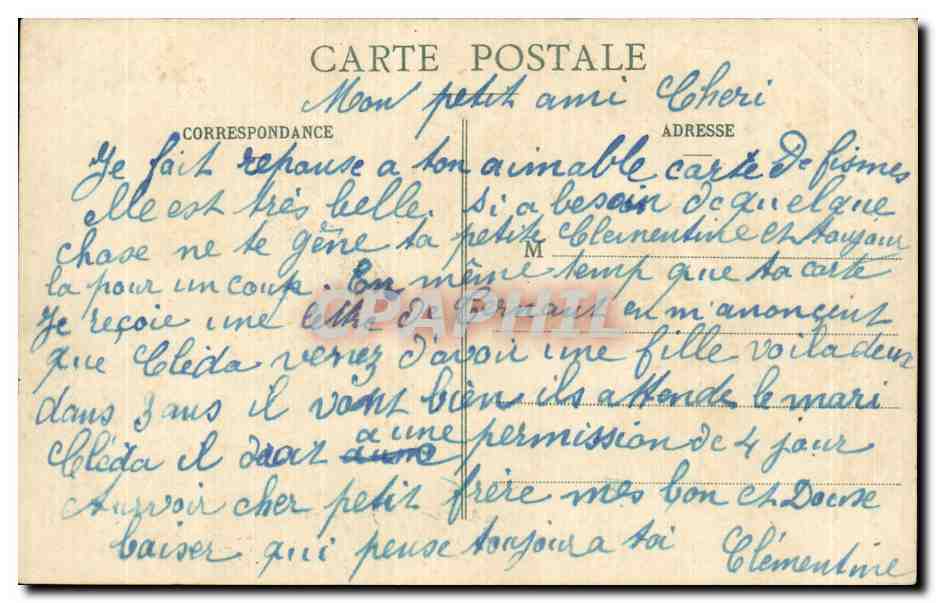 CARTE POSTALE
Mon petit ami Cheri
CORRESPONDANCE
ADRESSE
Je fait reponse a ton aimable carte De fismes
elle est très belle. si a besoin de quelque
chose ne te gêne ta petite Clementine et toujour
M
la pour un coup. En même temp que ta carte
Je reçoie une lettre de en m'anoncent
que Cléda venez d'avoir une fille voila deux
dans 3 ans il vont bien ils attende le mari
Cléda il a une permission de 4 jour
Aurvoir cher petit frère mes bon et Douse
baiser qui pense toujour a toi Clémentine
CPAPHIL